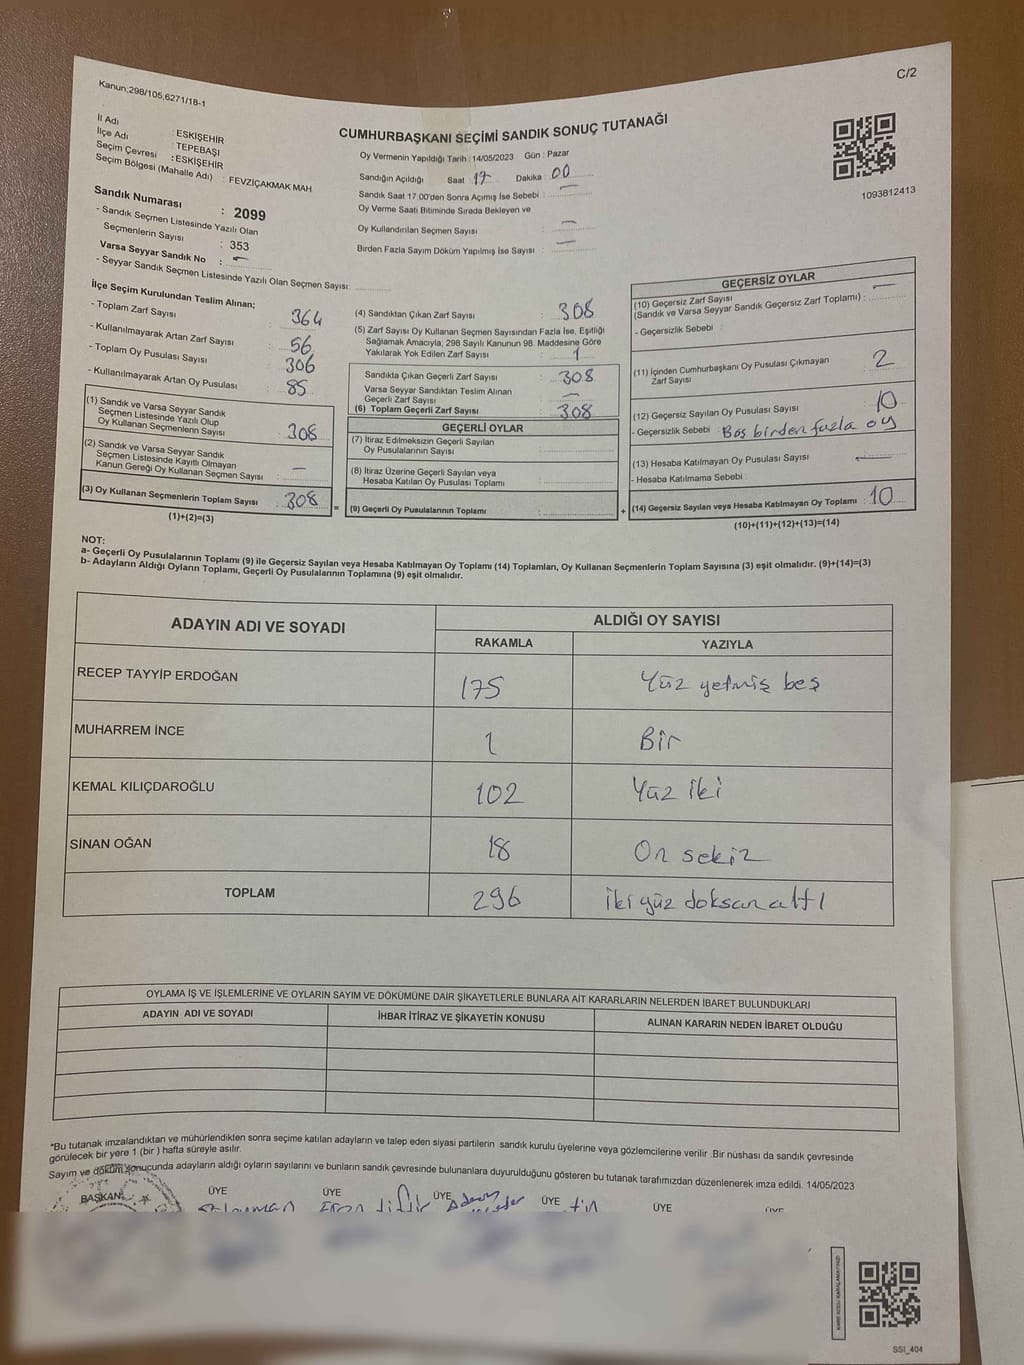 C/2
Kanun;298/105,6271/18-1
CUMHURBAŞKANI SEÇİMİ SANDIK SONUÇ TUTANAĞI
İl Adı : ESKİŞEHİR
İlçe Adı : TEPEBAŞI
Seçim Çevresi : ESKİŞEHİR
Seçim Bölgesi (Mahalle Adı) : FEVZİÇAKMAK MAH
Sandık Numarası : 2099
- Sandık Seçmen Listesinde Yazılı Olan
Seçmenlerin Sayısı : 353
Varsa Seyyar Sandık No : –
- Seyyar Sandık Seçmen Listesinde Yazılı Olan Seçmen Sayısı:
Oy Vermenin Yapıldığı Tarih : 14/05/2023 Gün : Pazar
Sandığın Açıldığı Saat : 17 Dakika : 00
Sandık Saat 17:00'den Sonra Açımış İse Sebebi : –
Oy Verme Saati Bitiminde Sırada Bekleyen ve
Oy Kullandırılan Seçmen Sayısı : –
Birden Fazla Sayım Döküm Yapılmış İse Sayısı : –
1093812413
İlçe Seçim Kurulundan Teslim Alınan;
- Toplam Zarf Sayısı : 364
- Kullanılmayarak Artan Zarf Sayısı : 56
- Toplam Oy Pusulası Sayısı : 306
- Kullanılmayarak Artan Oy Pusulası : 85
(1) Sandık ve Varsa Seyyar Sandık
Seçmen Listesinde Yazılı Olup
Oy Kullanan Seçmenlerin Sayısı : 308
(2) Sandık ve Varsa Seyyar Sandık
Seçmen Listesinde Kayıtlı Olmayan
Kanun Gereği Oy Kullanan Seçmen Sayısı : –
(3) Oy Kullanan Seçmenlerin Toplam Sayısı : 308
(1)+(2)=(3)
=
(4) Sandıktan Çıkan Zarf Sayısı : 308
(5) Zarf Sayısı Oy Kullanan Seçmen Sayısından Fazla İse, Eşitliği
Sağlamak Amacıyla; 298 Sayılı Kanunun 98. Maddesine Göre
Yakılarak Yok Edilen Zarf Sayısı : 1
Sandıkta Çıkan Geçerli Zarf Sayısı : 308
Varsa Seyyar Sandıktan Teslim Alınan
Geçerli Zarf Sayısı : –
(6) Toplam Geçerli Zarf Sayısı : 308
GEÇERLİ OYLAR
(7) İtiraz Edilmeksizin Geçerli Sayılan
Oy Pusulalarının Sayısı :
(8) İtiraz Üzerine Geçerli Sayılan veya
Hesaba Katılan Oy Pusulası Toplamı :
(9) Geçerli Oy Pusulalarının Toplamı :
+
GEÇERSİZ OYLAR
(10) Geçersiz Zarf Sayısı
(Sandık ve Varsa Seyyar Sandık Geçersiz Zarf Toplamı) : –
- Geçersizlik Sebebi :
(11) İçinden Cumhurbaşkanı Oy Pusulası Çıkmayan
Zarf Sayısı : 2
(12) Geçersiz Sayılan Oy Pusulası Sayısı : 10
- Geçersizlik Sebebi : Boş birden fazla oy
(13) Hesaba Katılmayan Oy Pusulası Sayısı –
- Hesaba Katılmama Sebebi
(14) Geçersiz Sayılan veya Hesaba Katılmayan Oy Toplamı : 10
(10)+(11)+(12)+(13)=(14)
NOT:
a- Geçerli Oy Pusulalarının Toplamı (9) ile Geçersiz Sayılan veya Hesaba Katılmayan Oy Toplamı (14) Toplamları, Oy Kullanan Seçmenlerin Toplam Sayısına (3) eşit olmalıdır. (9)+(14)=(3)
b- Adayların Aldığı Oyların Toplamı, Geçerli Oy Pusulalarının Toplamına (9) eşit olmalıdır.
ADAYIN ADI VE SOYADI ALDIĞI OY SAYISI
RAKAMLA YAZIYLA
RECEP TAYYİP ERDOĞAN 175 Yüz yetmiş beş
MUHARREM İNCE 1 Bir
KEMAL KILIÇDAROĞLU 102 Yüz iki
SİNAN OĞAN 18 On sekiz
TOPLAM 296 iki yüz doksan altı
OYLAMA İŞ VE İŞLEMLERİNE VE OYLARIN SAYIM VE DÖKÜMÜNE DAİR ŞİKAYETLERLE BUNLARA AİT KARARLARIN NELERDEN İBARET BULUNDUKLARI
ADAYIN ADI VE SOYADI İHBAR İTİRAZ VE ŞİKAYETİN KONUSU ALINAN KARARIN NEDEN İBARET OLDUĞU
*Bu tutanak imzalandıktan ve mühürlendikten sonra seçime katılan adayların ve talep eden siyasi partilerin sandık kurulu üyelerine veya gözlemcilerine verilir .Bir nüshası da sandık çevresinde
görülecek bir yere 1 (bir ) hafta süreyle asılır.
Sayım ve döküm sonucunda adayların aldığı oyların sayılarını ve bunların sandık çevresinde bulunanlara duyurulduğunu gösteren bu tutanak tarafımızdan düzenlenerek imza edildi. 14/05/2023
BAŞKAN ÜYE ÜYE ÜYE ÜYE ÜYE ÜYE
SSI_404